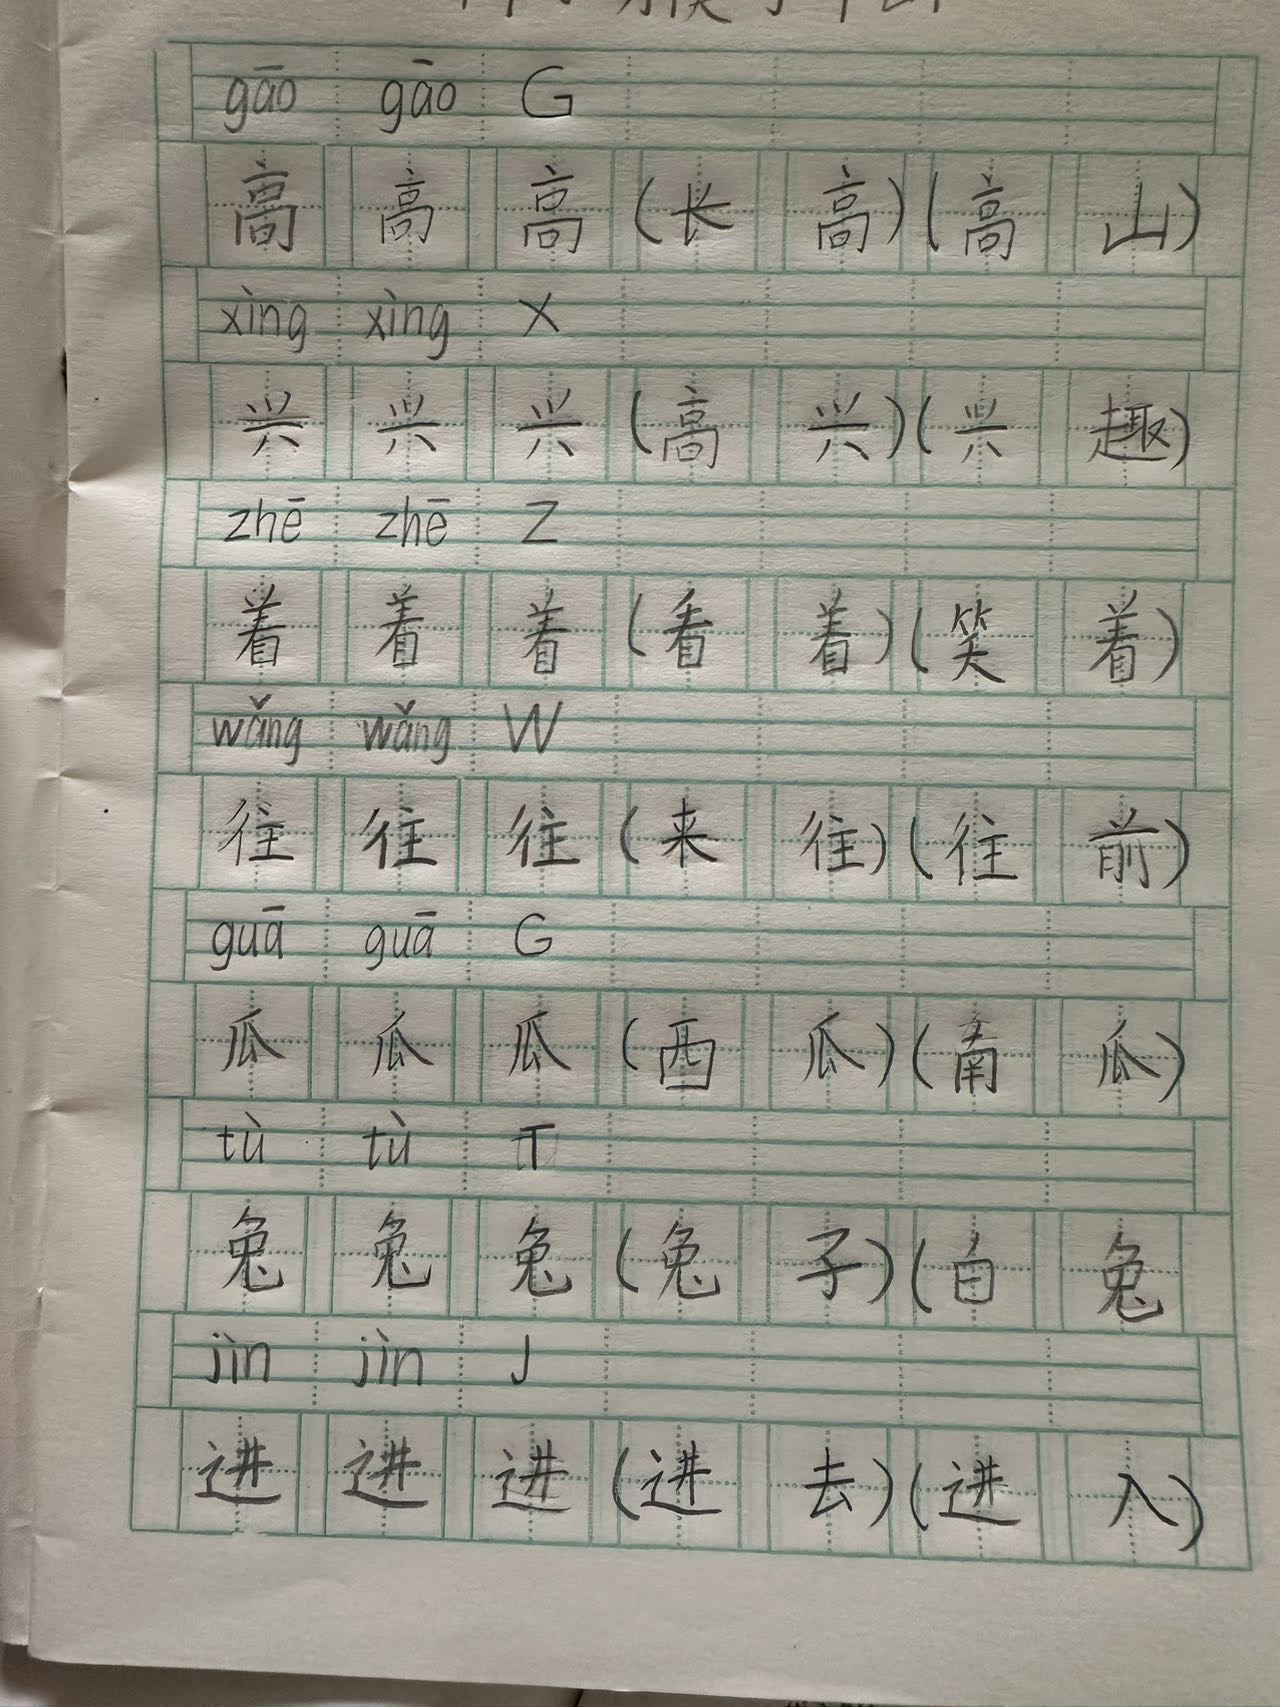 gāo gāo G
高 高 高 (长 高) (高 山)
xìng xìng X
兴 兴 兴 (高 兴) (兴 趣)
zhē zhē Z
着 着 着 (看 着) (笑 着)
wǎng wǎng W
往 往 往 (来 往) (往 前)
guā guā G
瓜 瓜 瓜 (西 瓜) (南 瓜)
tù tù T
兔 兔 兔 (兔 子) (白 兔)
jìn jìn J
进 进 进 (进 去) (进 入)